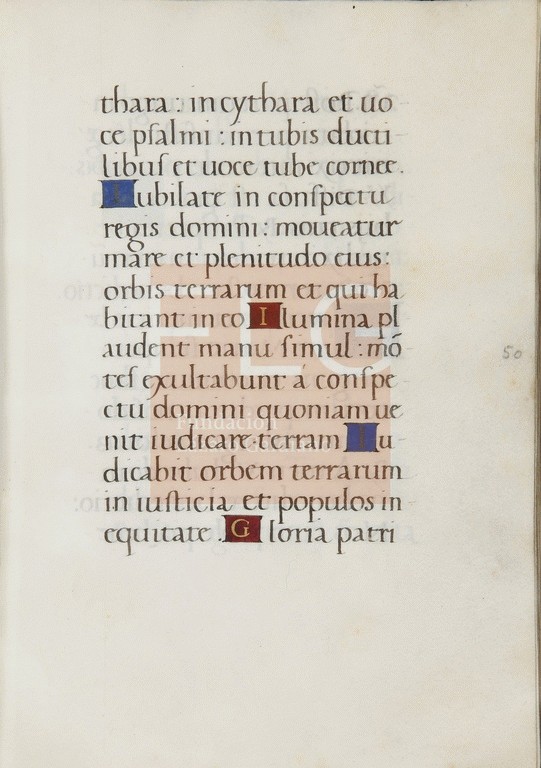 thara : in cythara et uo
ce psalmi : in tubis ducti
libus et uoce tube cornee .
Iubilate in conspectu
regis domini : moueatur
mare et plenitudo eius :
orbis terrarum et qui ha
bitant in eo Ilumina pl
audent manu simul : mō
tes exultabunt á conspe
ctu domini quoniam ue
nit iudicare terram Iu
dicabit orbem terrarum
in iusticia et populos in
equitate . Gloria patri
50
FLG
Fundación